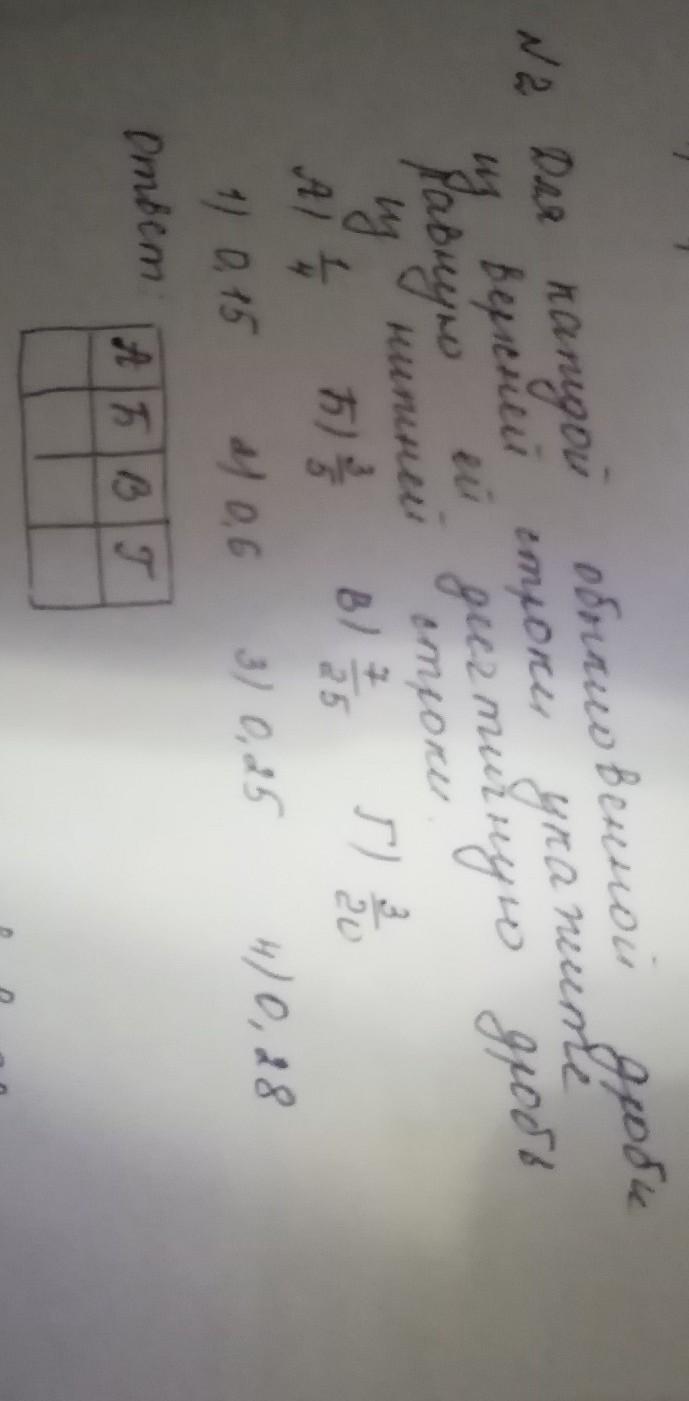 N2 Для каждой обыкновенной дроби
из верхней строки укажите
равную ей десятичную дробь
из нижней строки.
А) 1/4 Б) 3/5 В) 7/25 Г) 3/20
1) 0,15 2) 0,6 3) 0,25 4) 0,28
Ответ:
А Б В Г